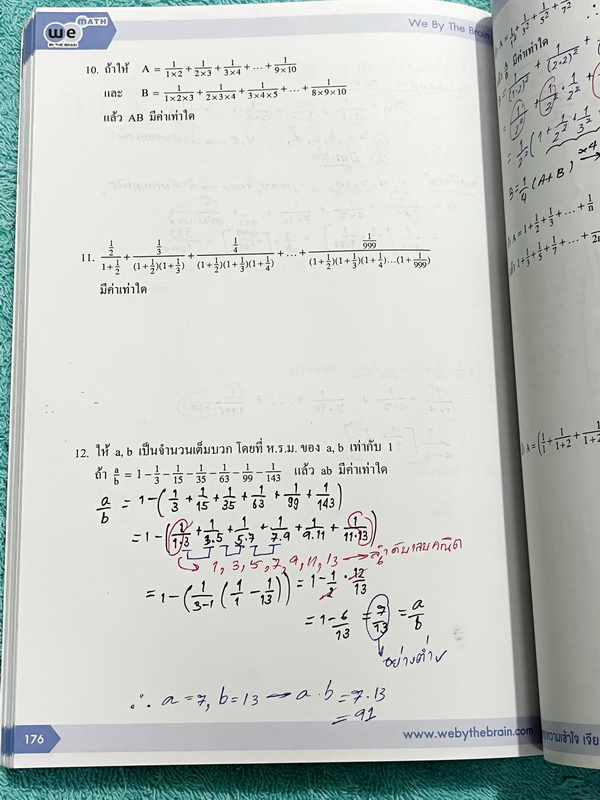 we MATH
BY THE BRAIN
We By The Brain
10. ถ้าให้ A = 1/(1×2) + 1/(2×3) + 1/(3×4) + ... + 1/(9×10)
และ B = 1/(1×2×3) + 1/(2×3×4) + 1/(3×4×5) + ... + 1/(8×9×10)
แล้ว AB มีค่าเท่าใด
11. (1/2)/(1+1/2) + (1/3)/((1+1/2)(1+1/3)) + (1/4)/((1+1/2)(1+1/3)(1+1/4)) + ... + (1/999)/((1+1/2)(1+1/3)(1+1/4)...(1+1/999))
มีค่าเท่าใด
12. ให้ a, b เป็นจำนวนเต็มบวก โดยที่ ห.ร.ม. ของ a, b เท่ากับ 1
ถ้า a/b = 1 − 1/3 − 1/15 − 1/35 − 1/63 − 1/99 − 1/143 แล้ว ab มีค่าเท่าใด
a/b = 1 − (1/3 + 1/15 + 1/35 + 1/63 + 1/99 + 1/143)
= 1 − (1/1·3 + 1/3·5 + 1/5·7 + 1/7·9 + 1/9·11 + 1/11·13)
1, 3, 5, 7, 9, 11, 13 → ลำดับเลขคณิต
= 1 − (1/(3−1) (1/1 − 1/13)) = 1 − 1/2 · 12/13
= 1 − 6/13 = 7/13 = a/b
อย่างต่ำ
∴ a = 7, b = 13 → a·b = 7·13
= 91
176
www.webythebrain.com
B = 1/4 (A+B) ×4